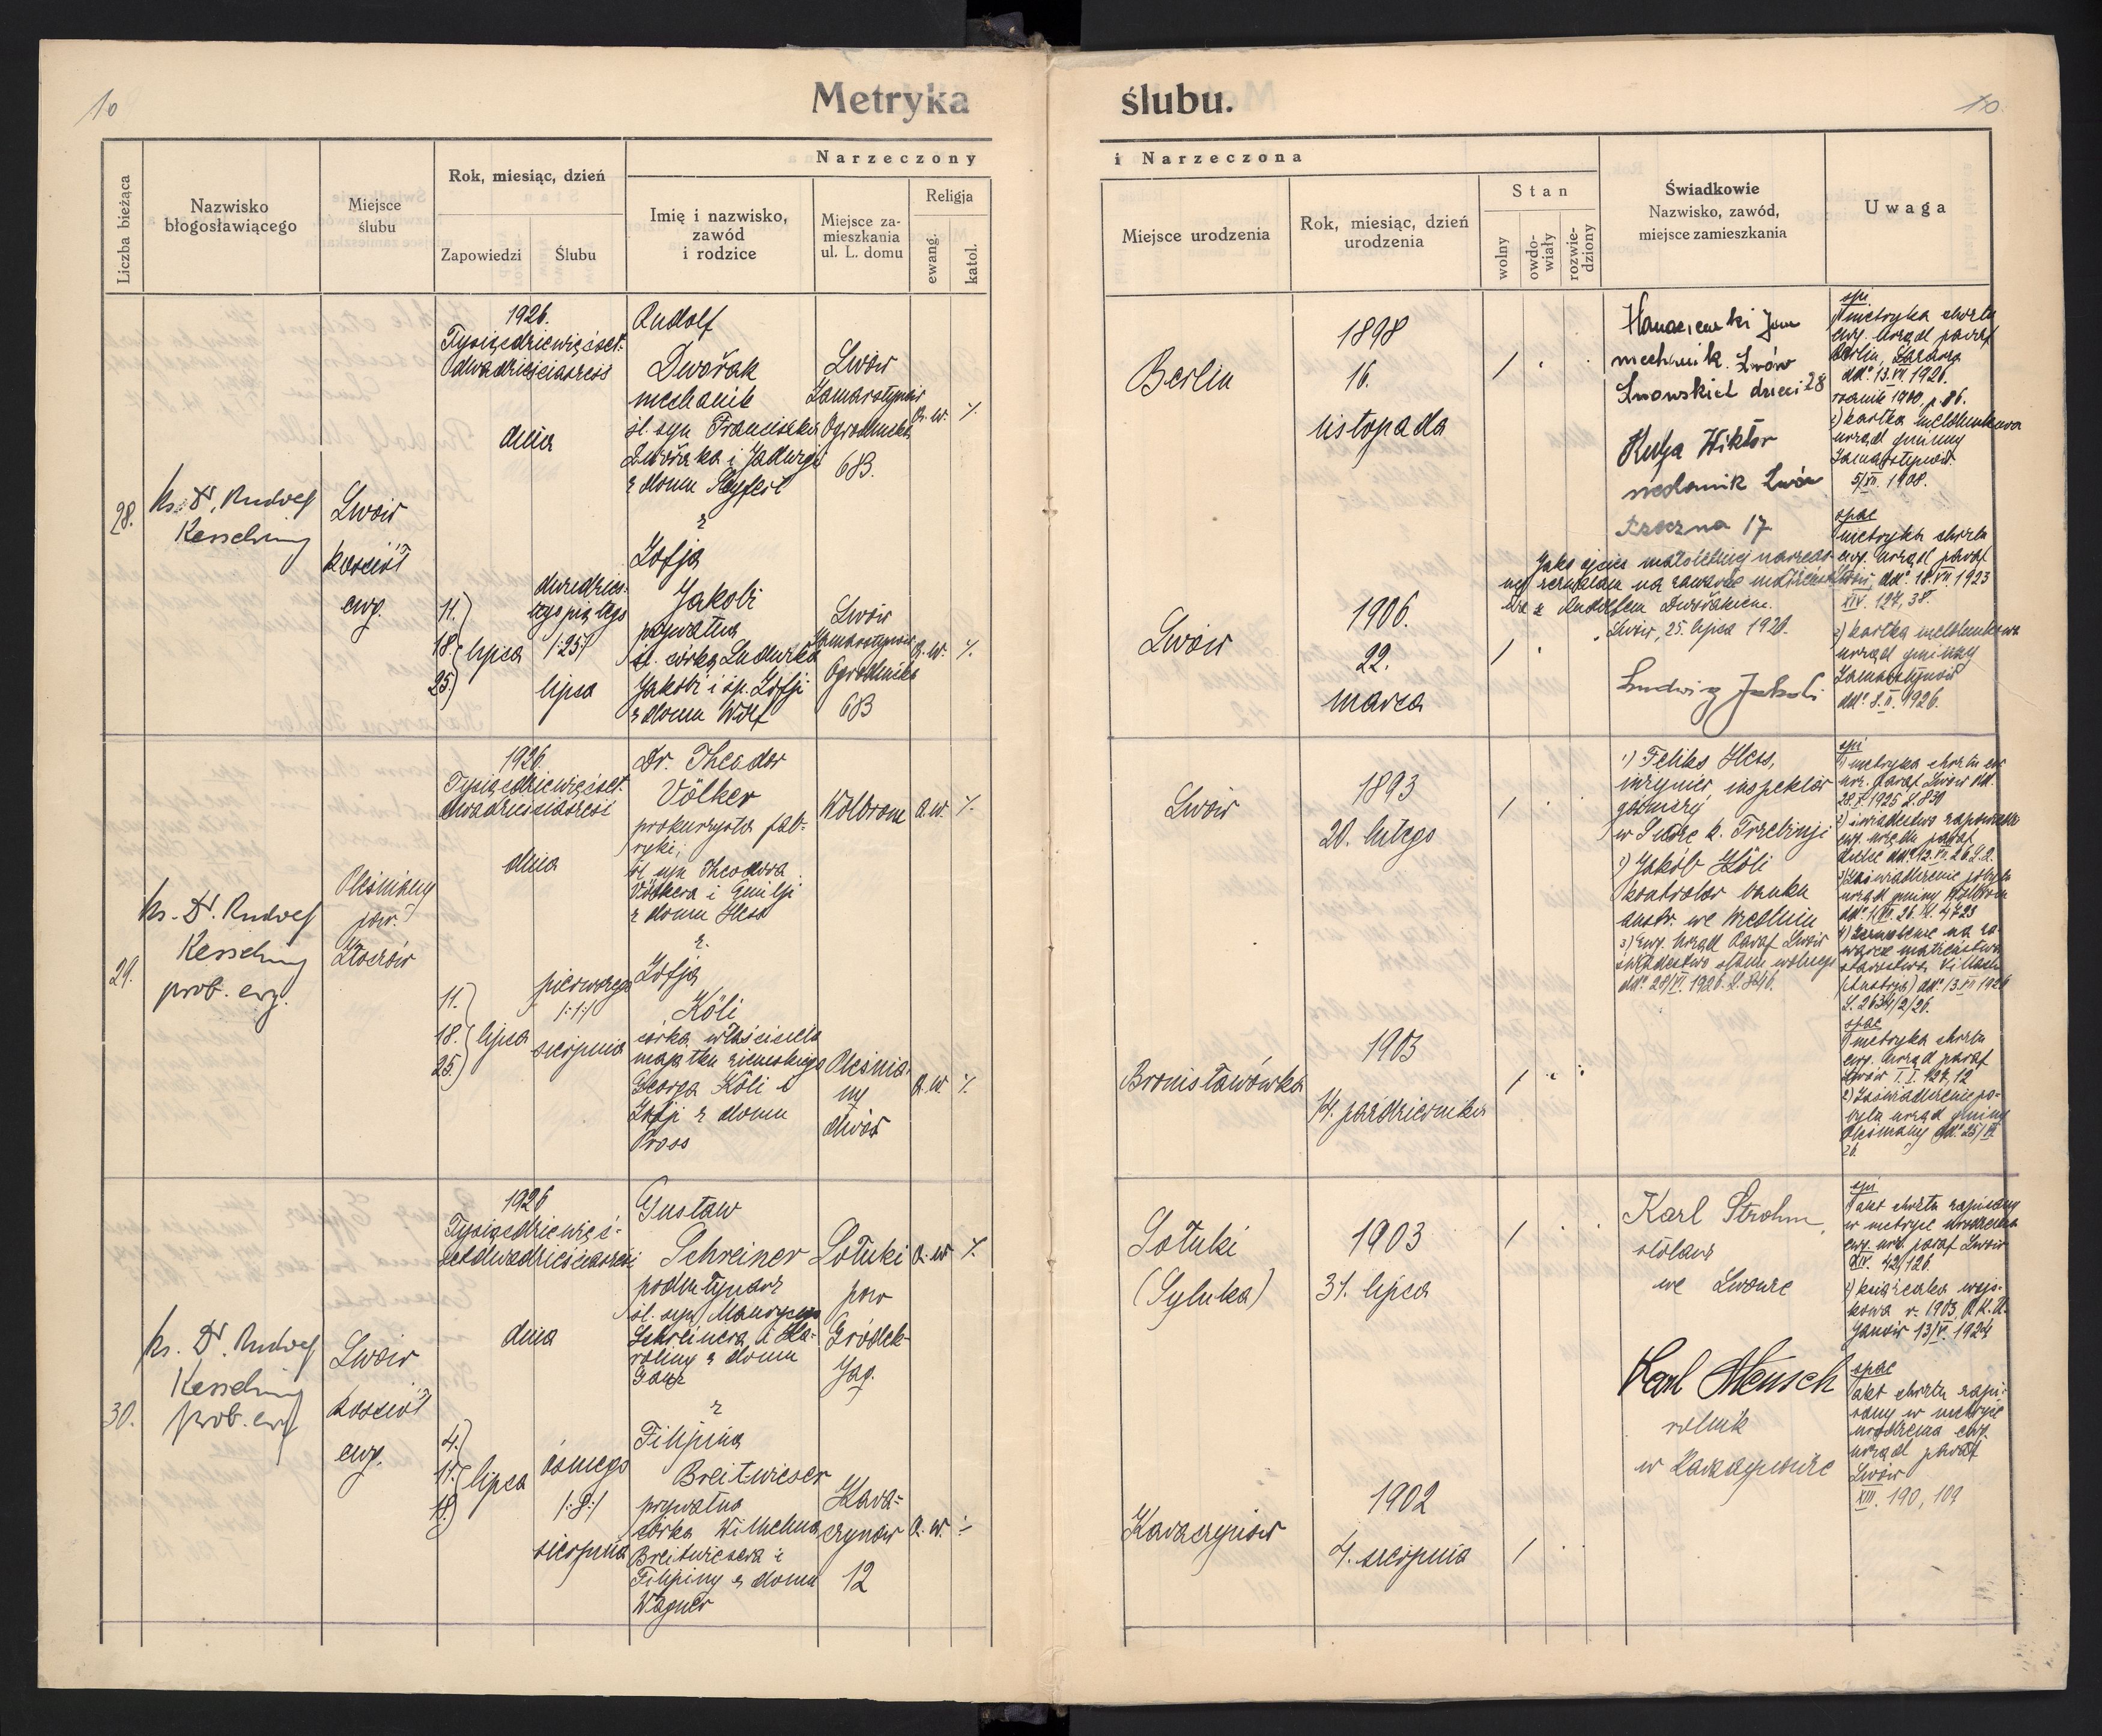 10
Metryka
ślubu.
10.
Liczba bieżąca
Nazwisko
błogosławiącego
Miejsce
ślubu
Rok, miesiąc, dzień
Zapowiedzi
Ślubu
Narzeczony
Imię i nazwisko,
zawód
i rodzice
Miejsce za-
mieszkania
ul. L. domu
Religja
ewang.
katol.
i Narzeczona
Miejsce urodzenia
Rok, miesiąc, dzień
urodzenia
Stan
wolny
owdo-
wiały
rozwie-
dziony
Świadkowie
Nazwisko, zawód,
miejsce zamieszkania
Uwaga
28.
ks. Dr. Rudolf
Kesselring
Lwów
kościół
ewg.
1926.
Tysiącdziewięćset-
dwadzieściasześć
dnia
11.
18. lipca
25.
dwudzies-
tego piątego
/:25:/
lipca
Rudolf
Dvořak
mechanik
śl. syn Franciszka
Dvořaka i Jadwigi
z domu
z
Zofja
Jakobi
prywatna
śl. córka Ludwika
Jakobi i śp. Zofji
z domu Wolf
Lwów
Zamarstynów
Ogrodnicka
683.
a. w.
Lwów
Zamarstynów
Ogrodnicka
683
a. w.
Berlin
1898
16.
listopada
Lwów
1906.
22.
marca
Jan
mechanik Lwów
Lwowskich dzieci 28
Wiktor
mechanik Lwów
17
Jako ojciec małoletniej narzeczo-
nej zezwalam na zawarcie małżeń
z Rudolfem Dvořakiem.
Lwów, 25. lipca 1926.
Ludwig Jakobi
spi
1) metryka chrztu
ewg. urząd paraf
Berlin,
dd. 13.VII 1926.
rocznik 1900, p. 86.
2) kartka meldunkowa
urząd gminny
Zamarstynów
5/XII. 1908.
spae
metryka chrztu
ewg. urząd paraf
Lwów, dd. 18.VII 1923
XIV. 127, 38.
2) kartka meldunkowa
urząd gminny
Zamarstynów
dd. 8.II. 1926.
29.
ks. Dr. Rudolf
Kesselring
prob. ewg.
Oleśniany
pow.
Złoczów
1926.
Tysiącdziewięćset-
dwadzieściasześć
dnia
11.
18. lipca
25.
pierwszego
/:1:/
sierpnia
Dr. Theodor
Völker
prokurzysta fab-
ryki,
śl. syn Theodora
Völkera i Emilji
z domu Hess
z.
Zofja
Köli
córka właściciela
majątku ziemskiego
Georga Köli i
Zofji z domu
Pross
Wolbrom
a. w.
Oleśnia-
ny
dwór
a. w.
Lwów
1893
20. lutego
Bronisławówka
1903
14. października
1) Feliks Hess,
inżynier, inspektor
górniczy
w Siorze k. Trzebinji
2) Jakób Köli
kontrolor banku
austr. we Wiedniu
3) Ewg. Urząd Paraf Lwów
świadectwo stanu wolnego
dd. 28/VI. 1926. L. 846.
spi
1) metryka chrztu ew
urz. paraf. Lwów dd.
28.X 1925 L. 830
2) świadectwo zapowiedzi
ewg. urzędu paraf.
3) Zaświadczenie pobytu
urząd gminy Wolbrom
4723
4) Zezwolenie na za-
warcie małżeństwa
starostwa Villach
(Austrja) dd. 13.VII 1926
L. 2634/2/26.
spae
1) metryka chrztu
ewg. urząd paraf
Lwów I. I. 127, 12
2) Zaświadczenie po-
bytu urząd gminy
Oleśniany dd. 25/VII
26.
30.
ks. Dr. Rudolf
Kesselring
prob. ewg
Lwów
kościół
ewg.
1926
Tysiącdziewięć-
setdwadzieściasześć
dnia
4.
11. lipca
18.
ósmego
/:8:/
sierpnia
Gustaw
Schreiner
podmłynarz
śl. syn Maurycego
Schreinera i Ka-
roliny z domu
Ganz
z
Filipina
Breitwieser
prywatna
córka Wilhelma
Breitwiesera i
Filipiny z domu
Wagner
Sołuki
pow
Gródek
Jag.
a. w
Kara-
czynów
12
a. w.
Sołuki
(Syluka)
1903
31. lipca
Karaczynów
1902
4. sierpnia
Karl Strohm
stolarz
we Lwowie
Karl Mensch
rolnik
w Karaczynowie
spi
1) akt chrztu zapisany
w metryce urodzenia
ewg. urz. paraf Lwów
XIV. 42, 126
2) książeczka wojs-
kowa r. 1903, P.K.U.
Janów 13/V. 1924
spae
akt chrztu zapi-
sany w metryce
urodzenia ewg.
urząd paraf
Lwów
XIII. 190, 109